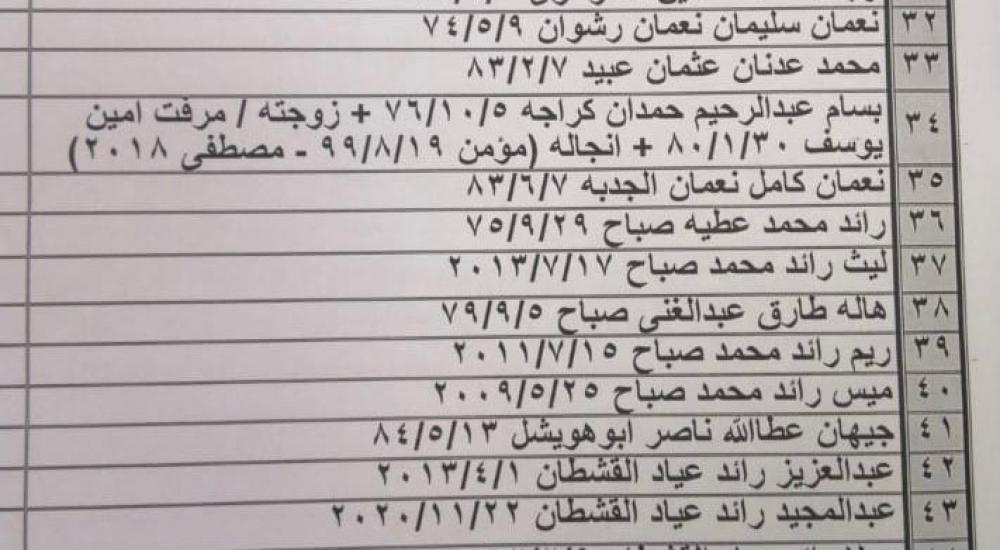 ٣٢ نعمان سليمان نعمان رشوان ٧٤/٥/٩
٣٣ محمد عدنان عثمان عبيد ٨٣/٢/٧
٣٤ بسام عبدالرحيم حمدان كراجه ٧٦/١٠/٥ + زوجته / مرفت امين
يوسف ٨٠/١/٣٠ + انجاله (مؤمن ٩٩/٨/١٩ - مصطفى ٢٠١٨)
٣٥ نعمان كامل نعمان الجدبه ٨٣/٦/٧
٣٦ رائد محمد عطيه صباح ٧٥/٩/٢٩
٣٧ ليث رائد محمد صباح ٢٠١٣/٧/١٧
٣٨ هاله طارق عبدالغنى صباح ٧٩/٩/٥
٣٩ ريم رائد محمد صباح ٢٠١١/٧/١٥
٤٠ ميس رائد محمد صباح ٢٠٠٩/٥/٢٥
٤١ جيهان عطاالله ناصر ابوهويشل ٨٤/٥/١٣
٤٢ عبدالعزيز رائد عياد القشطان ٢٠١٣/٤/١
٤٣ عبدالمجيد رائد عياد القشطان ٢٠٢٠/١١/٢٢